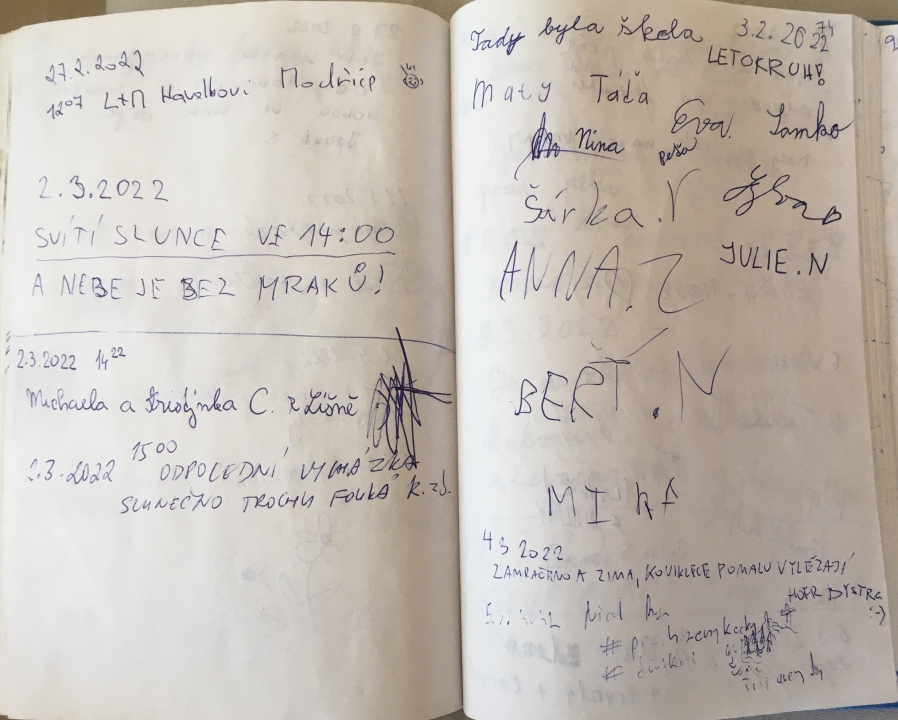 27.2.2022
12⁰⁷ L+M Havelkovi Modřice
2.3.2022
SVÍTÍ SLUNCE VE 14:00
A NEBE JE BEZ MRAKŮ!
2.3.2022 14²²
Michaela a C. z Líšně
2.3.2022 15⁰⁰ ODPOLEDNÍ VYCHÁZKA
SLUNEČNO TROCHU FOUKÁ K.
Tady byla škola 3.2.2022
LETOKRUH!
Maty Táďa
Nina Eva Samko
Peťa
Šárka.V
ANNA.Z JULIE.N
BERŤ.N
MIKA
4.3 2022
ZAMRAČENO A ZIMA, KONIKLECE POMALU VYLÉZAJÍ
:-)
#
#